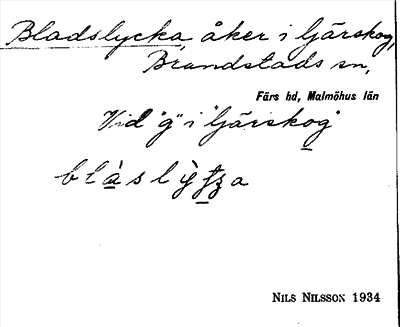 Bladslycka, åker i Gärskog,
Brandstads sn,
Färs hd, Malmöhus län
Vid "g" i "Gärskog"
NILS NILSSON 1934